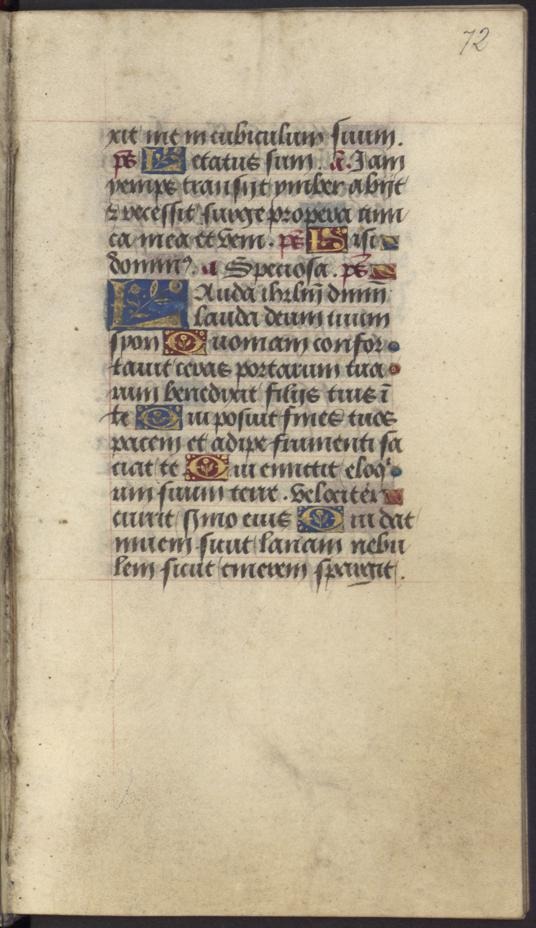 72
xit me in cubiculum suum.
ps Letatus sum. a Iam
yemps transijt ymber abijt
& recessit surge propera ami
ca mea et veni. ps Nisi
domin9. a Speciosa. ps
Lauda ihrlm dnm
lauda deum tuum
syon Quoniam confor
tauit ceras portarum tua
rum benedixit filijs tuis i
te Qui posuit fines tuos
pacem et adipe frumenti sa
ciat te Qui emittit eloq
um suum terre. velociter
currit smo eius Qui dat
niuem sicut lanam nebu
lem sicut cinerem spargit.